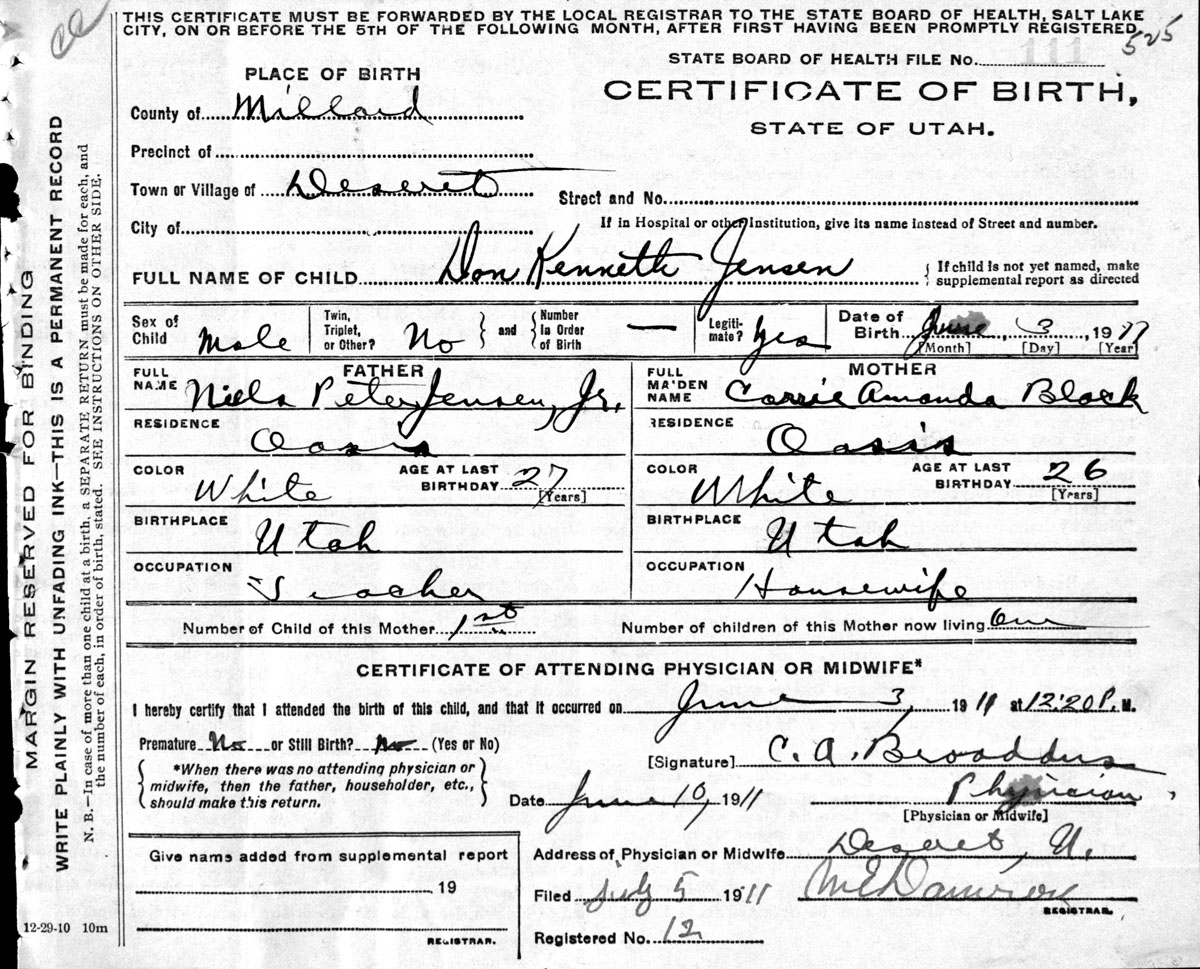 THIS CERTIFICATE MUST BE FORWARDED BY THE LOCAL REGISTRAR TO THE STATE BOARD OF HEALTH, SALT LAKE
CITY, ON OR BEFORE THE 5TH OF THE FOLLOWING MONTH, AFTER FIRST HAVING BEEN PROMPTLY REGISTERED.
525
STATE BOARD OF HEALTH FILE No. 111
PLACE OF BIRTH
CERTIFICATE OF BIRTH,
STATE OF UTAH.
County of Millard
Precinct of
Town or Village of Deseret
Street and No.
City of
If in Hospital or other institution, give its name instead of Street and number.
FULL NAME OF CHILD Don Kenneth Jensen
{ If child is not yet named, make
supplemental report as directed
Sex of Child Male
Twin, Triplet, or Other? No } and { Number in Order of Birth —
Legitimate? Yes
Date of Birth June 3, 1911
[Month] [Day] [Year]
FATHER
FULL NAME Niels Peter Jensen, Jr.
RESIDENCE Oasis
COLOR White AGE AT LAST BIRTHDAY 27 [Years]
BIRTHPLACE Utah
OCCUPATION Teacher
MOTHER
FULL MAIDEN NAME Carrie Amanda Black
RESIDENCE Oasis
COLOR White AGE AT LAST BIRTHDAY 26 [Years]
BIRTHPLACE Utah
OCCUPATION Housewife
Number of Child of this Mother 1st Number of children of this Mother now living One
CERTIFICATE OF ATTENDING PHYSICIAN OR MIDWIFE*
I hereby certify that I attended the birth of this child, and that it occurred on June 3, 1911 at 12:20 P. M.
Premature No or Still Birth? No (Yes or No)
[Signature] C. A. Broaddus
*When there was no attending physician or
midwife, then the father, householder, etc.,
should make this return.
Date June 10, 1911 Physician
[Physician or Midwife]
Give name added from supplemental report
19
REGISTRAR.
Address of Physician or Midwife Deseret, U.
Filed July 5 1911 M E Damron
REGISTRAR.
Registered No. 12
12-29-10 10m
MARGIN RESERVED FOR BINDING
WRITE PLAINLY WITH UNFADING INK—THIS IS A PERMANENT RECORD
N. B.—In case of more than one child at a birth, a SEPARATE RETURN must be made for each, and
the number of each, in order of birth, stated. SEE INSTRUCTIONS ON OTHER SIDE.